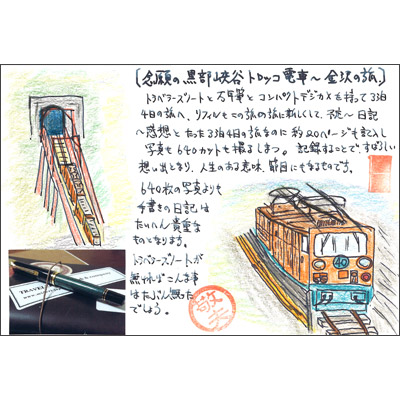 〔念願の黒部峡谷トロッコ電車～金沢の旅〕
トラベラーズノートと万年筆とコンパクトデジカメを持って3泊
4日の旅へ、リフィルもこの旅の為に新しくして、予定～日記
～感想とたった3泊4日の旅なのに約20ページも記入し
写真も640カットも撮るしまつ。記録することで、すばらしい
想い出となり、人生のある意味、節目にもなるものです。
640枚の写真よりも
手書きの日記は
たいへん貴重な
ものとなります。
トラベラーズノートが
無ければこんな事
はたぶん無かった
でしょう。
40
敬天
TRAVEL
& Company